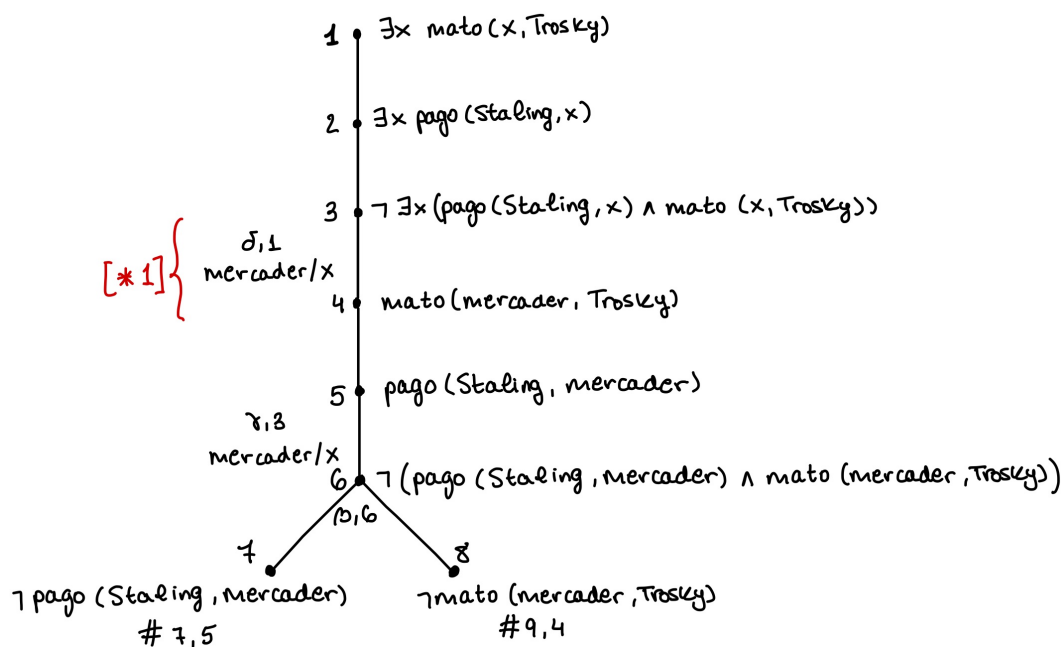 1 ∃x mato(x,Trosky)
2 ∃x pago(Staling,x)
3 ¬∃x(pago(Staling,x) ∧ mato (x,Trosky))
δ,1
mercader/x
[*1]
4 mato(mercader, Trosky)
5 pago(Staling, mercader)
γ,3
mercader/x
6 ¬(pago (Staling, mercader) ∧ mato (mercader,Trosky))
β,6
7
8
¬pago (Staling, mercader)
¬mato (mercader,Trosky)
# 7,5
#9,4